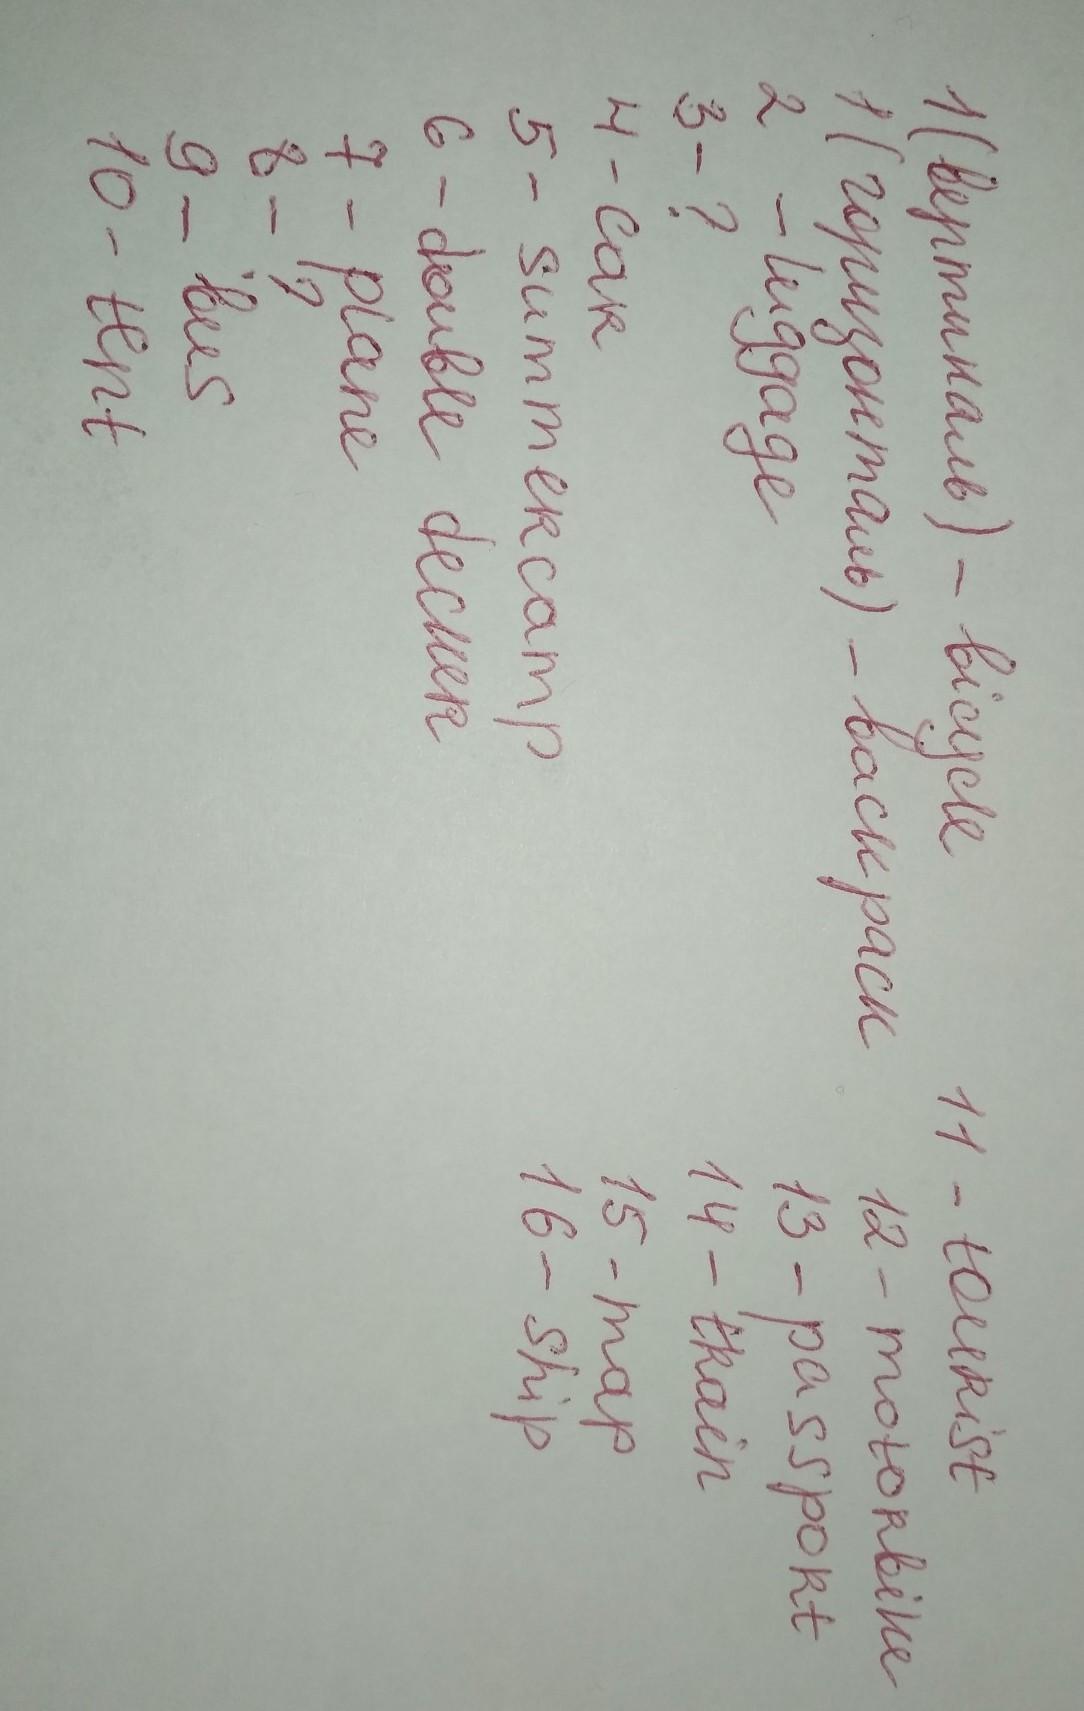 1(вертикаль) - bicycle
1(горизонталь) - backpack
2 - luggage
3 - ?
4 - car
5 - summercamp
6 - double decker
7 - plane
8 - ?
9 - bus
10 - tent
11 - tourist
12 - motorbike
13 - passport
14 - train
15 - map
16 - ship